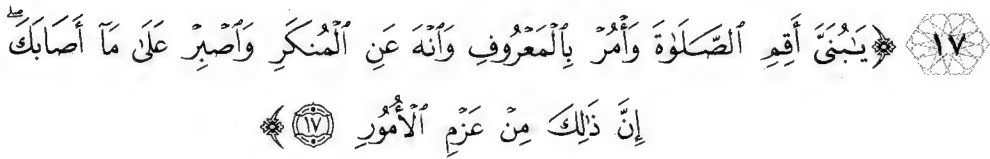 ١٧ ﴿يَـٰبُنَىَّ أَقِمِ ٱلصَّلَوٰةَ وَأْمُرْ بِٱلْمَعْرُوفِ وَٱنْهَ عَنِ ٱلْمُنكَرِ وَٱصْبِرْ عَلَىٰ مَآ أَصَابَكَ ۖ
إِنَّ ذَٰلِكَ مِنْ عَزْمِ ٱلْأُمُورِ ١٧﴾